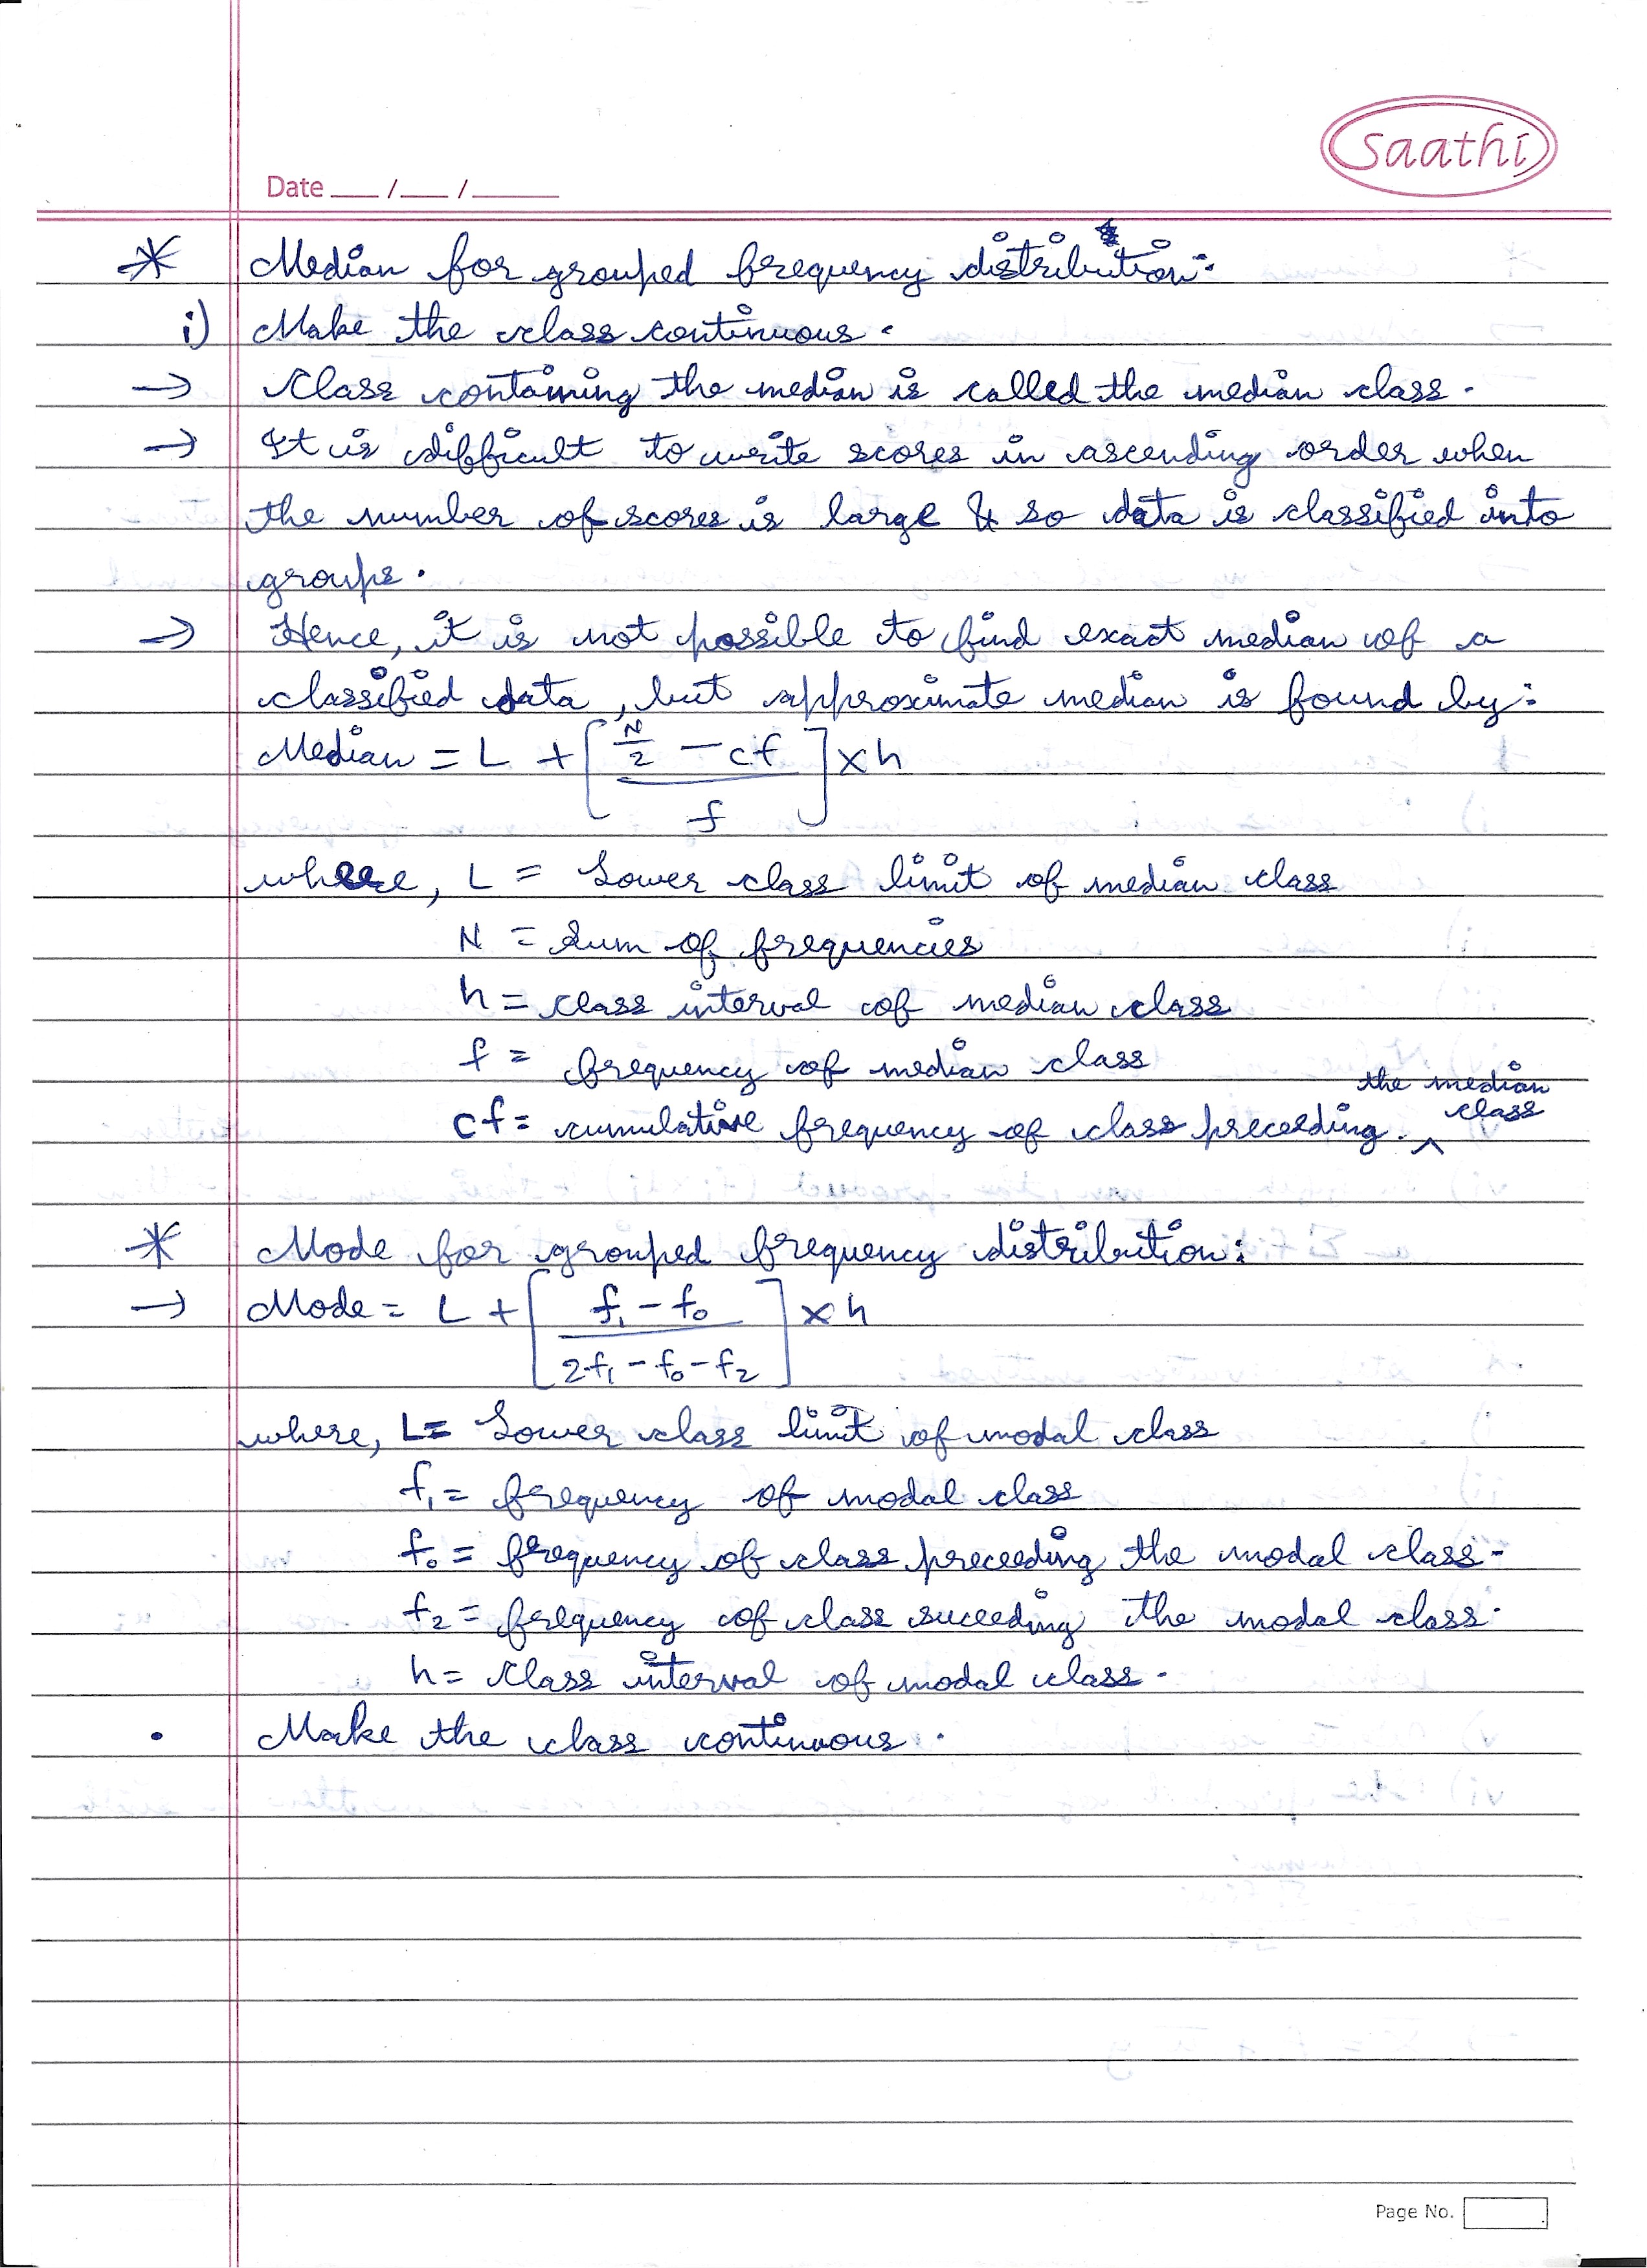 saathi
Date ___ /___ /_____
* Median for grouped frequency distribution:
i) Make the class continuous.
→ Class containing the median is called the median class.
→ It is difficult to write scores in ascending order when
the number of scores is large & so data is classified into
groups.
→ Hence, it is not possible to find exact median of a
classified data, but approximate median is found by:
Median = L + [(N/2 - cf)/f] × h
where, L = Lower class limit of median class
N = Sum of frequencies
h = class interval of median class
f = frequency of median class
cf = cumulative frequency of class preceeding. ^ the median class
* Mode for grouped frequency distribution:
→ Mode = L + [(f₁ - f₀)/(2f₁ - f₀ - f₂)] × h
where, L = Lower class limit of modal class
f₁ = frequency of modal class
f₀ = frequency of class preceeding the modal class-
f₂ = frequency of class suceeding the modal class.
h = Class interval of modal class.
• Make the class continuous.
Page No.